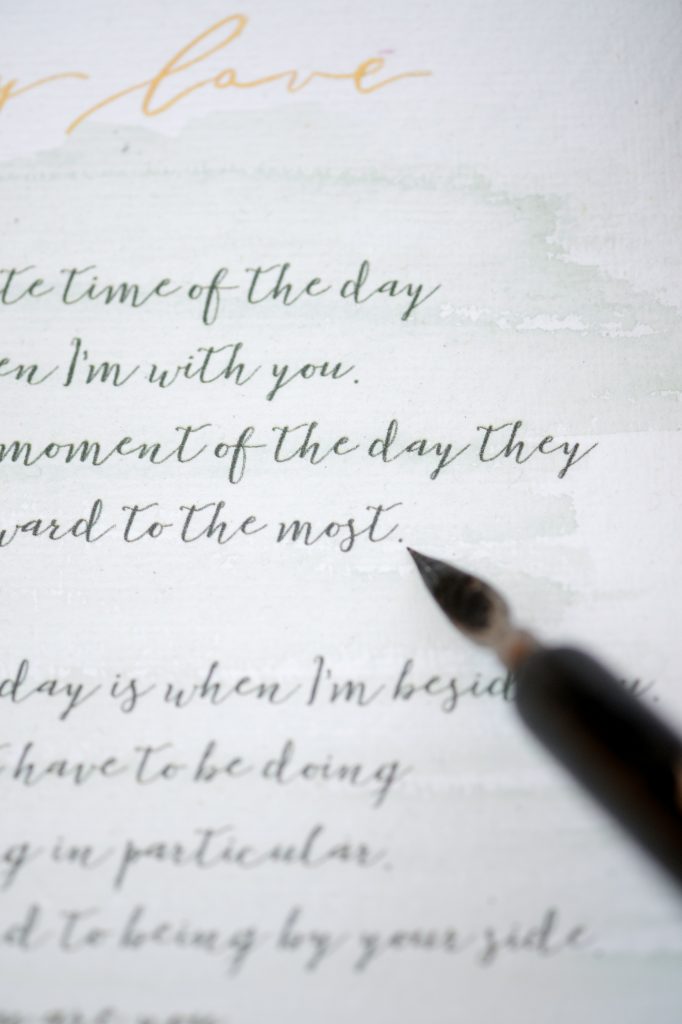 y love
te time of the day
en I'm with you.
moment of the day they
ward to the most.
day is when I'm besid u.
t have to be doing
g in particular.
d to being by your side